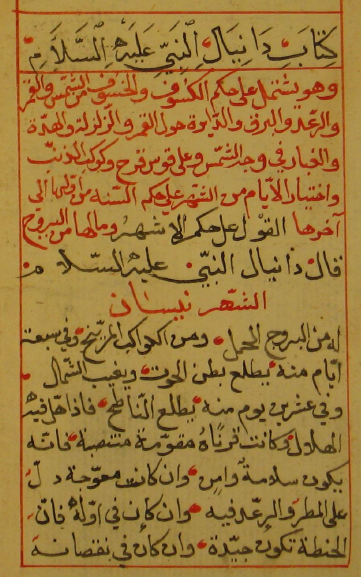 كتاب دانيال النبي عليه السلام
وهو يشتمل على حكم الكسوف والخسوف من الشمس والقمر
والرعد والبرق والدايرة حول القمر والزلزلة والهدة
والغبار في وجه الشمس وعلى قوس قزح وكوكب الذنب
واختيار الأيام من الشهر على حكم السنة من اولها الى
آخرها القول على حكم الاشهر ومالها من البروج
قال دانيال النبي عليه السلام
الشهر نيسان
له من البروج الحمل ومن الكواكب المريخ وفي سبعة
ايام منه يطلع بطن الحوت ويغيب الشمال
وفي عشرين يوم منه يطلع الناطح فاذا هل فيه
الهلال وكانت قرناه مقومة منتصبة فانه
يكون سلامة وامن وان كانت معوجة دل
على المطر والرعد فيه وان كان في اوله فان
الحنطة تكون جيدة وان كان في نقصانه